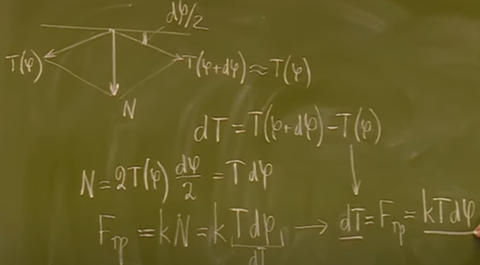 dφ/2
T(φ) T(φ+dφ)≈T(φ)
N
dT=T(φ+dφ)-T(φ)
N=2T(φ) dφ/2 =Tdφ
Fтр=kN=k Tdφ → dT=Fтр=kTdφ
dT